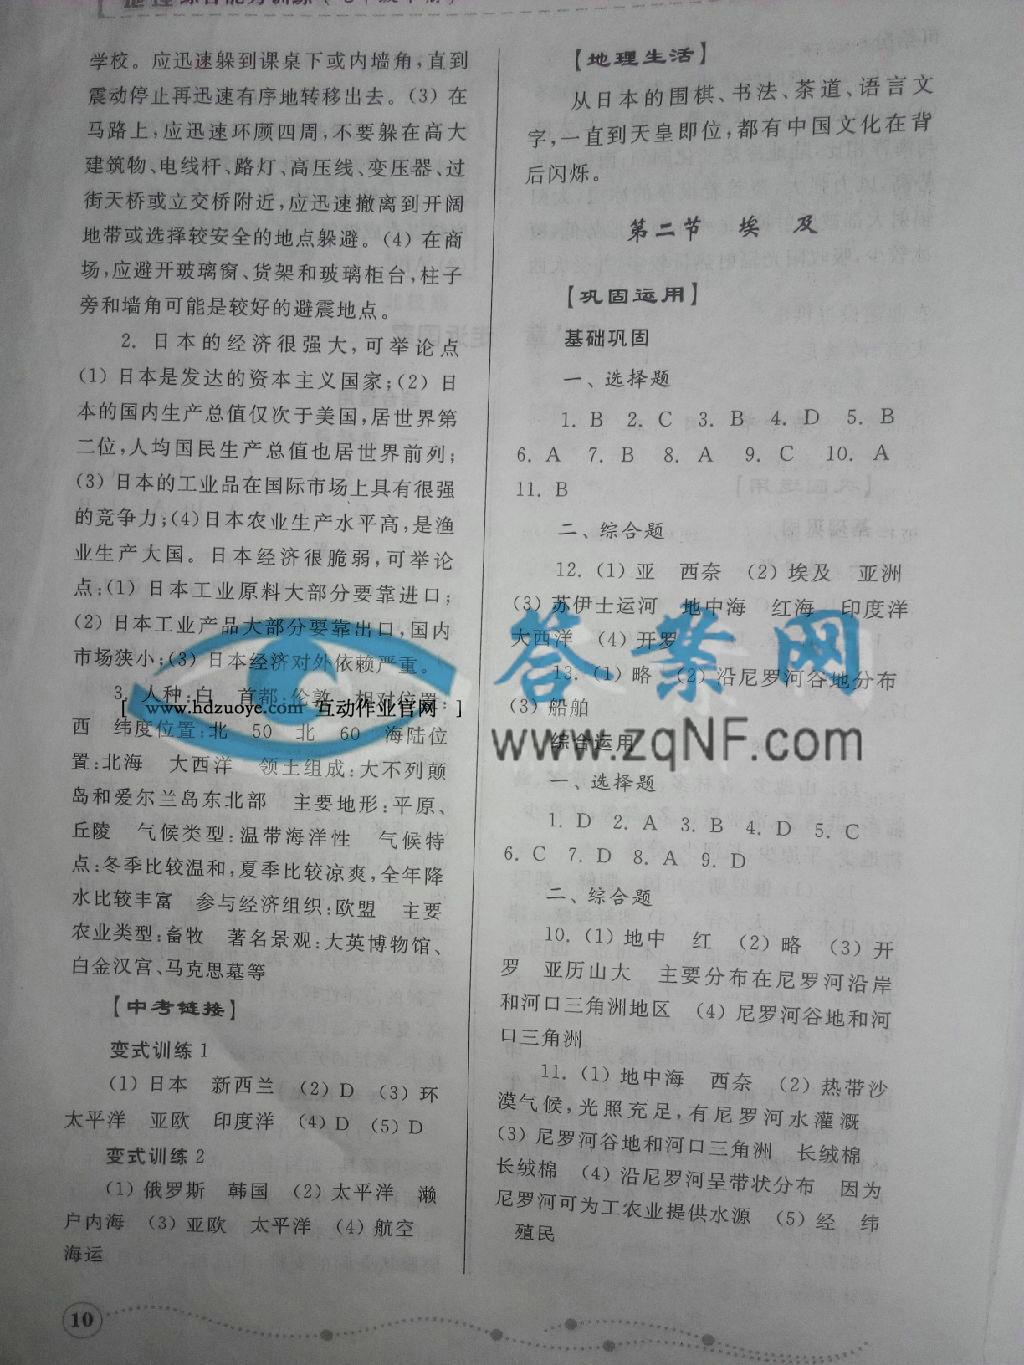 学校。应迅速躲到课桌下或内墙角,直到
震动停止再迅速有序地转移出去。(3) 在
马路上,应迅速环顾四周,不要躲在高大
建筑物、电线杆、路灯、高压线、变压器、过
街天桥或立交桥附近,应迅速撤离到开阔
地带或选择较安全的地点躲避。(4) 在商
场,应避开玻璃窗、货架和玻璃柜台,柱子
旁和墙角可能是较好的避震地点。
2. 日本的经济很强大,可举论点
(1) 日本是发达的资本主义国家;(2) 日
本的国内生产总值仅次于美国,居世界第
二位,人均国民生产总值也居世界前列;
(3) 日本的工业品在国际市场上具有很强
的竞争力;(4)日本农业生产水平高,是渔
业生产大国。日本经济很脆弱,可举论
点:(1) 日本工业原料大部分要靠进口;
(2) 日本工业产品大部分要靠出口,国内
市场狭小;(3) 日本经济对外依赖严重。
3. 人种:白 首都:伦敦 相对位置:
[ www.hdzuoye.com 互动作业官网 ]
西 纬度位置:北 50 北 60 海陆位
置:北海 大西洋 领土组成:大不列颠
岛和爱尔兰岛东北部 主要地形:平原、
丘陵 气候类型:温带海洋性 气候特
点:冬季比较温和,夏季比较凉爽,全年降
水比较丰富 参与经济组织:欧盟 主要
农业类型:畜牧 著名景观:大英博物馆、
白金汉宫、马克思墓等
【中考链接】
变式训练 1
(1) 日本 新西兰 (2) D (3) 环
太平洋 亚欧 印度洋 (4) D (5) D
变式训练 2
(1) 俄罗斯 韩国 (2) 太平洋 濑
户内海 (3) 亚欧 太平洋 (4) 航空
海运
10
【地理生活】
从日本的围棋、书法、茶道、语言文
字,一直到天皇即位,都有中国文化在背
后闪烁。
第二节 埃 及
【巩固运用】
基础巩固
一、选择题
1. B 2. C 3. B 4. D 5. B
6. A 7. B 8. A 9. C 10. A
11. B
二、综合题
12. (1) 亚 西奈 (2) 埃及 亚洲
(3) 苏伊士运河 地中海 红海 印度洋
大西洋 (4) 开罗
13. (1) 略 (2) 沿尼罗河谷地分布
(3) 船舶
答案网
www.zqNF.com
综合运用
一、选择题
1. D 2. A 3. B 4. D 5. C
6. C 7. D 8. A 9. D
二、综合题
10. (1) 地中 红 (2) 略 (3) 开
罗 亚历山大 主要分布在尼罗河沿岸
和河口三角洲地区 (4) 尼罗河谷地和河
口三角洲
11. (1) 地中海 西奈 (2) 热带沙
漠气候,光照充足,有尼罗河水灌溉
(3) 尼罗河谷地和河口三角洲 长绒棉
长绒棉 (4) 沿尼罗河呈带状分布 因为
尼罗河可为工农业提供水源 (5) 经 纬
殖民